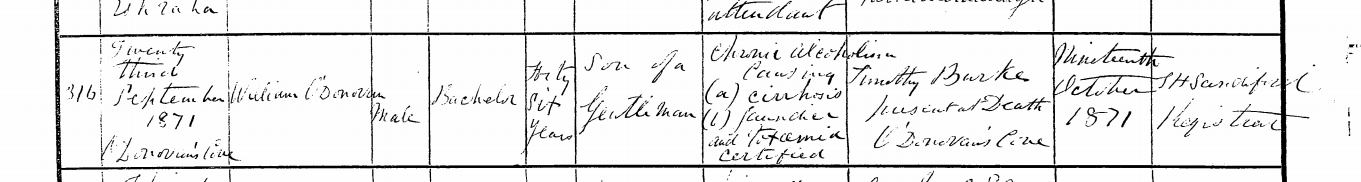 attendant
316
Twenty
third
September
1871
O'Donovan's Cove
William O'Donovan
Male
Bachelor
Forty
Six
Years
Son of a
Gentleman
Chronic Alcoholism
Causing
(a) cirrhosis
(b) Jaundice
and Toxaemia
certified
Timothy Burke
present at Death
O'Donovan's Cove
Nineteenth
October
1871
Registrar